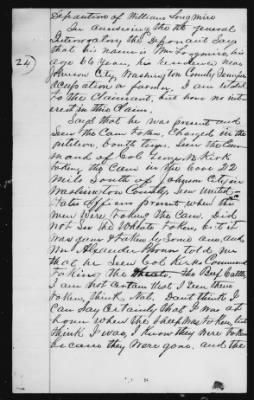 Deposition of William Longmire
In answering the 1st general
Interrogatory the Deponent Says
that his name is Wm Longmire, his
age 64 years, his residence near
Johnson City, Washington County Tennessee
occupation a farmer, I am not related
to the Claimant, but have no inte
rest in this Claim,
24)
Said that he was present and
Seen the Corn taken, Charged in the
petition, Could Seen the Com
mand of Col George W. Kirk
taking the Corn in the Cove 22
Mile South of Johnson City in
Washington County, Seen United
States officers present when the
men were taking the Corn. Did
not See the taken, but it
was gone & taken by Some one, and
Wm Alexander told me
that he Seen Col Kirks Command
taking the the Beef Cattle
I am not Certain that I Seen them
taken, think Not, Dont think I
Can Say Certainly that I was at
home when the Sheep was taken, but
think I was, I know they were taken
because they were gone, and the